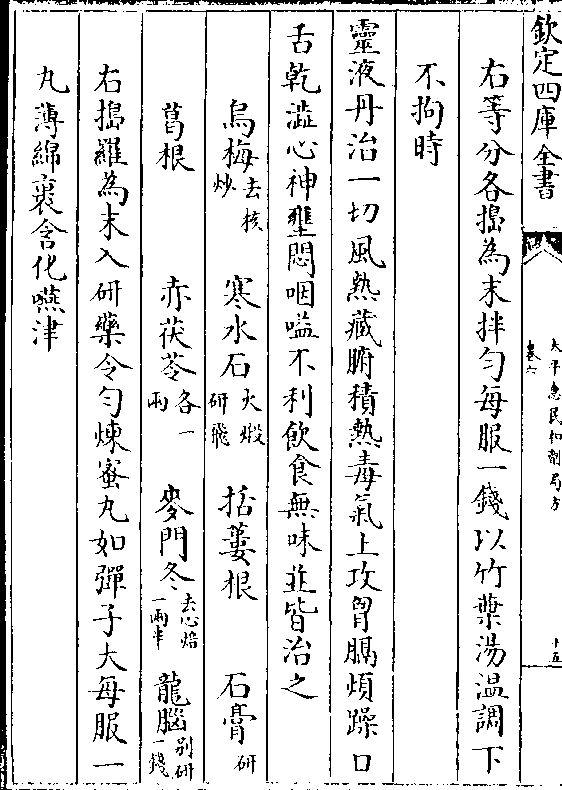 欽定四庫全書
太平惠民和劑局方
卷六
十五
右等分各搗為末拌勻每服一錢以竹葉湯溫調下
不拘時
靈液丹治一切風熱藏腑積熱毒氣上攻胷膈煩躁口
舌乾澁心神壅悶咽嗌不利飲食無味並皆治之
烏梅去核炒 寒水石火煅研飛 括蔞根 石膏研
葛根 赤茯苓各一兩 麥門冬去心焙一兩半 龍腦别研一錢
右搗羅為末入研藥令勻煉蜜丸如彈子大每服一
丸薄綿裹含化嚥津